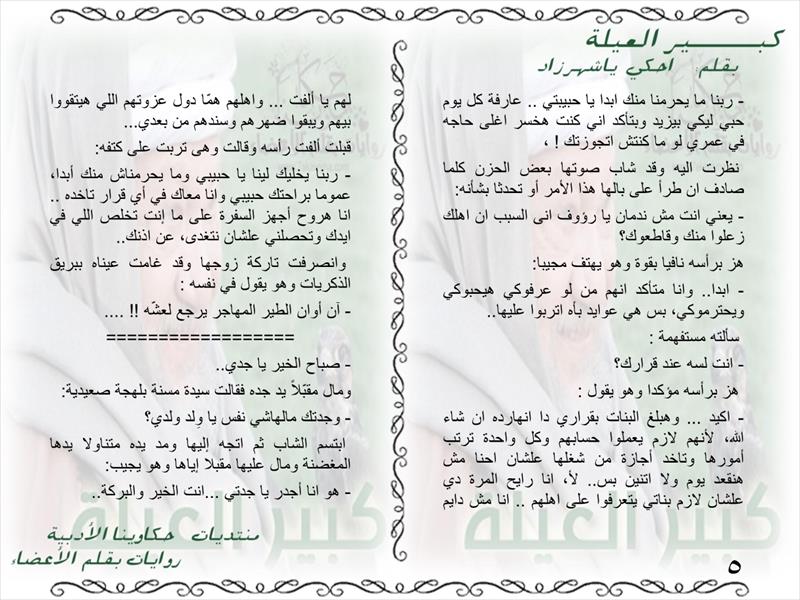 كبـــــــير العيلة
بقلم احكي ياشهرزاد
- ربنا ما يحرمنا منك ابدا يا حبيبتي .. عارفة كل يوم
حبي ليكي بيزيد وبتأكد اني كنت هخسر اغلى حاجه
في عمري لو ما كنتش اتجوزتك ! ،
نظرت اليه وقد شاب صوتها بعض الحزن كلما
صادف ان طرأ على بالها هذا الأمر أو تحدثا بشأنه:
- يعني انت مش ندمان يا رؤوف انى السبب ان اهلك
زعلوا منك وقاطعوك؟
هز برأسه نافيا بقوة وهو يهتف مجيبا:
- ابدا.. وانا متأكد انهم من لو عرفوكي هيحبوكي
ويحترموكي، بس هي عوايد بأه اتربوا عليها..
سألته مستفهمة :
- انت لسه عند قرارك؟
هز برأسه مؤكدا وهو يقول :
- اكيد ... وهبلغ البنات بقراري دا انهارده ان شاء
الله، لأنهم لازم يعملوا حسابهم وكل واحدة ترتب
أمورها وتاخد أجازة من شغلها علشان احنا مش
هنقعد يوم ولا اتنين بس.. لأ، انا رايح المرة دي
علشان لازم بناتي يتعرفوا على اهلهم .. انا مش دايم
لهم يا ألفت ... واهلهم همّا دول عزوتهم اللي هيتقووا
بيهم ويبقوا ضهرهم وسندهم من بعدي...
قبلت ألفت راسه وقالت وهى تربت على كتفه:
- ربنا يخليك لينا يا حبيبي وما يحرمناش منك أبدا،
عموما براحتك حبيبي وانا معاك في أي قرار تاخده ..
انا هروح أجهز السفرة على ما إنت تخلص اللي في
ايدك وتحصلني علشان نتغدى، عن اذنك..
وانصرفت تاركة زوجها وقد غامت عيناه ببريق
الذكريات وهو يقول في نفسه :
- آن أوان الطير المهاجر يرجع لعشّه !! ....
==================
- صباح الخير يا جدي..
ومال مقبّلاً يد جده فقالت سيدة مسنة بلهجة صعيدية:
- وجدتك مالهاشي نفس يا وِلد ولدي؟
ابتسم الشاب ثم اتجه إليها ومد يده متناولا يدها
المغضنة ومال عليها مقبلا إياها وهو يجيب:
- هو انا أجدر يا جدتي ...انت الخير والبركة..
كبير العيلة
كبير العيلة
منتديات حكاوينا الأدبية
روايات بقلم الأعضاء
٥